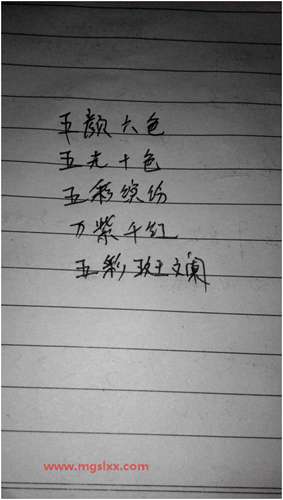 五颜六色
五光十色
五彩缤纷
万紫千红
五彩斑斓
www.mgslxx.com